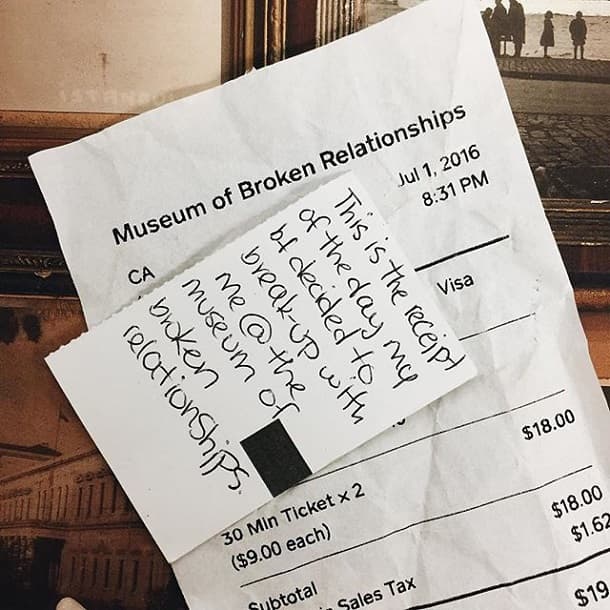 Museum of Broken Relationships
Jul 1, 2016
8:31 PM
CA
Visa
This is the receipt
of the day my
bf decided to
break-up with
me @ the
museum of
broken
relationships.
$18.00
30 Min Ticket x 2
($9.00 each)
Subtotal
$18.00
Sales Tax
$1.62
$19